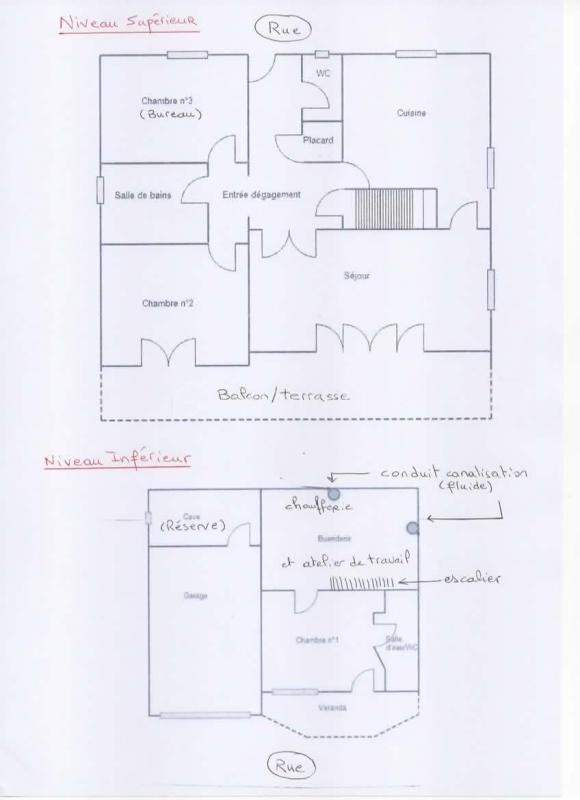 Niveau Supérieur
Rue
WC
Chambre n°3
(Bureau)
Cuisine
Placard
Salle de bains
Entrée dégagement
Séjour
Chambre n°2
Balcon/terrasse
Niveau Inférieur
conduit canalisation
(fluide)
chaufferie
Cave
(Réserve)
Buanderie
et atelier de travail
escalier
Garage
Chambre n°1
Salle
d'eau/WC
Véranda
Rue